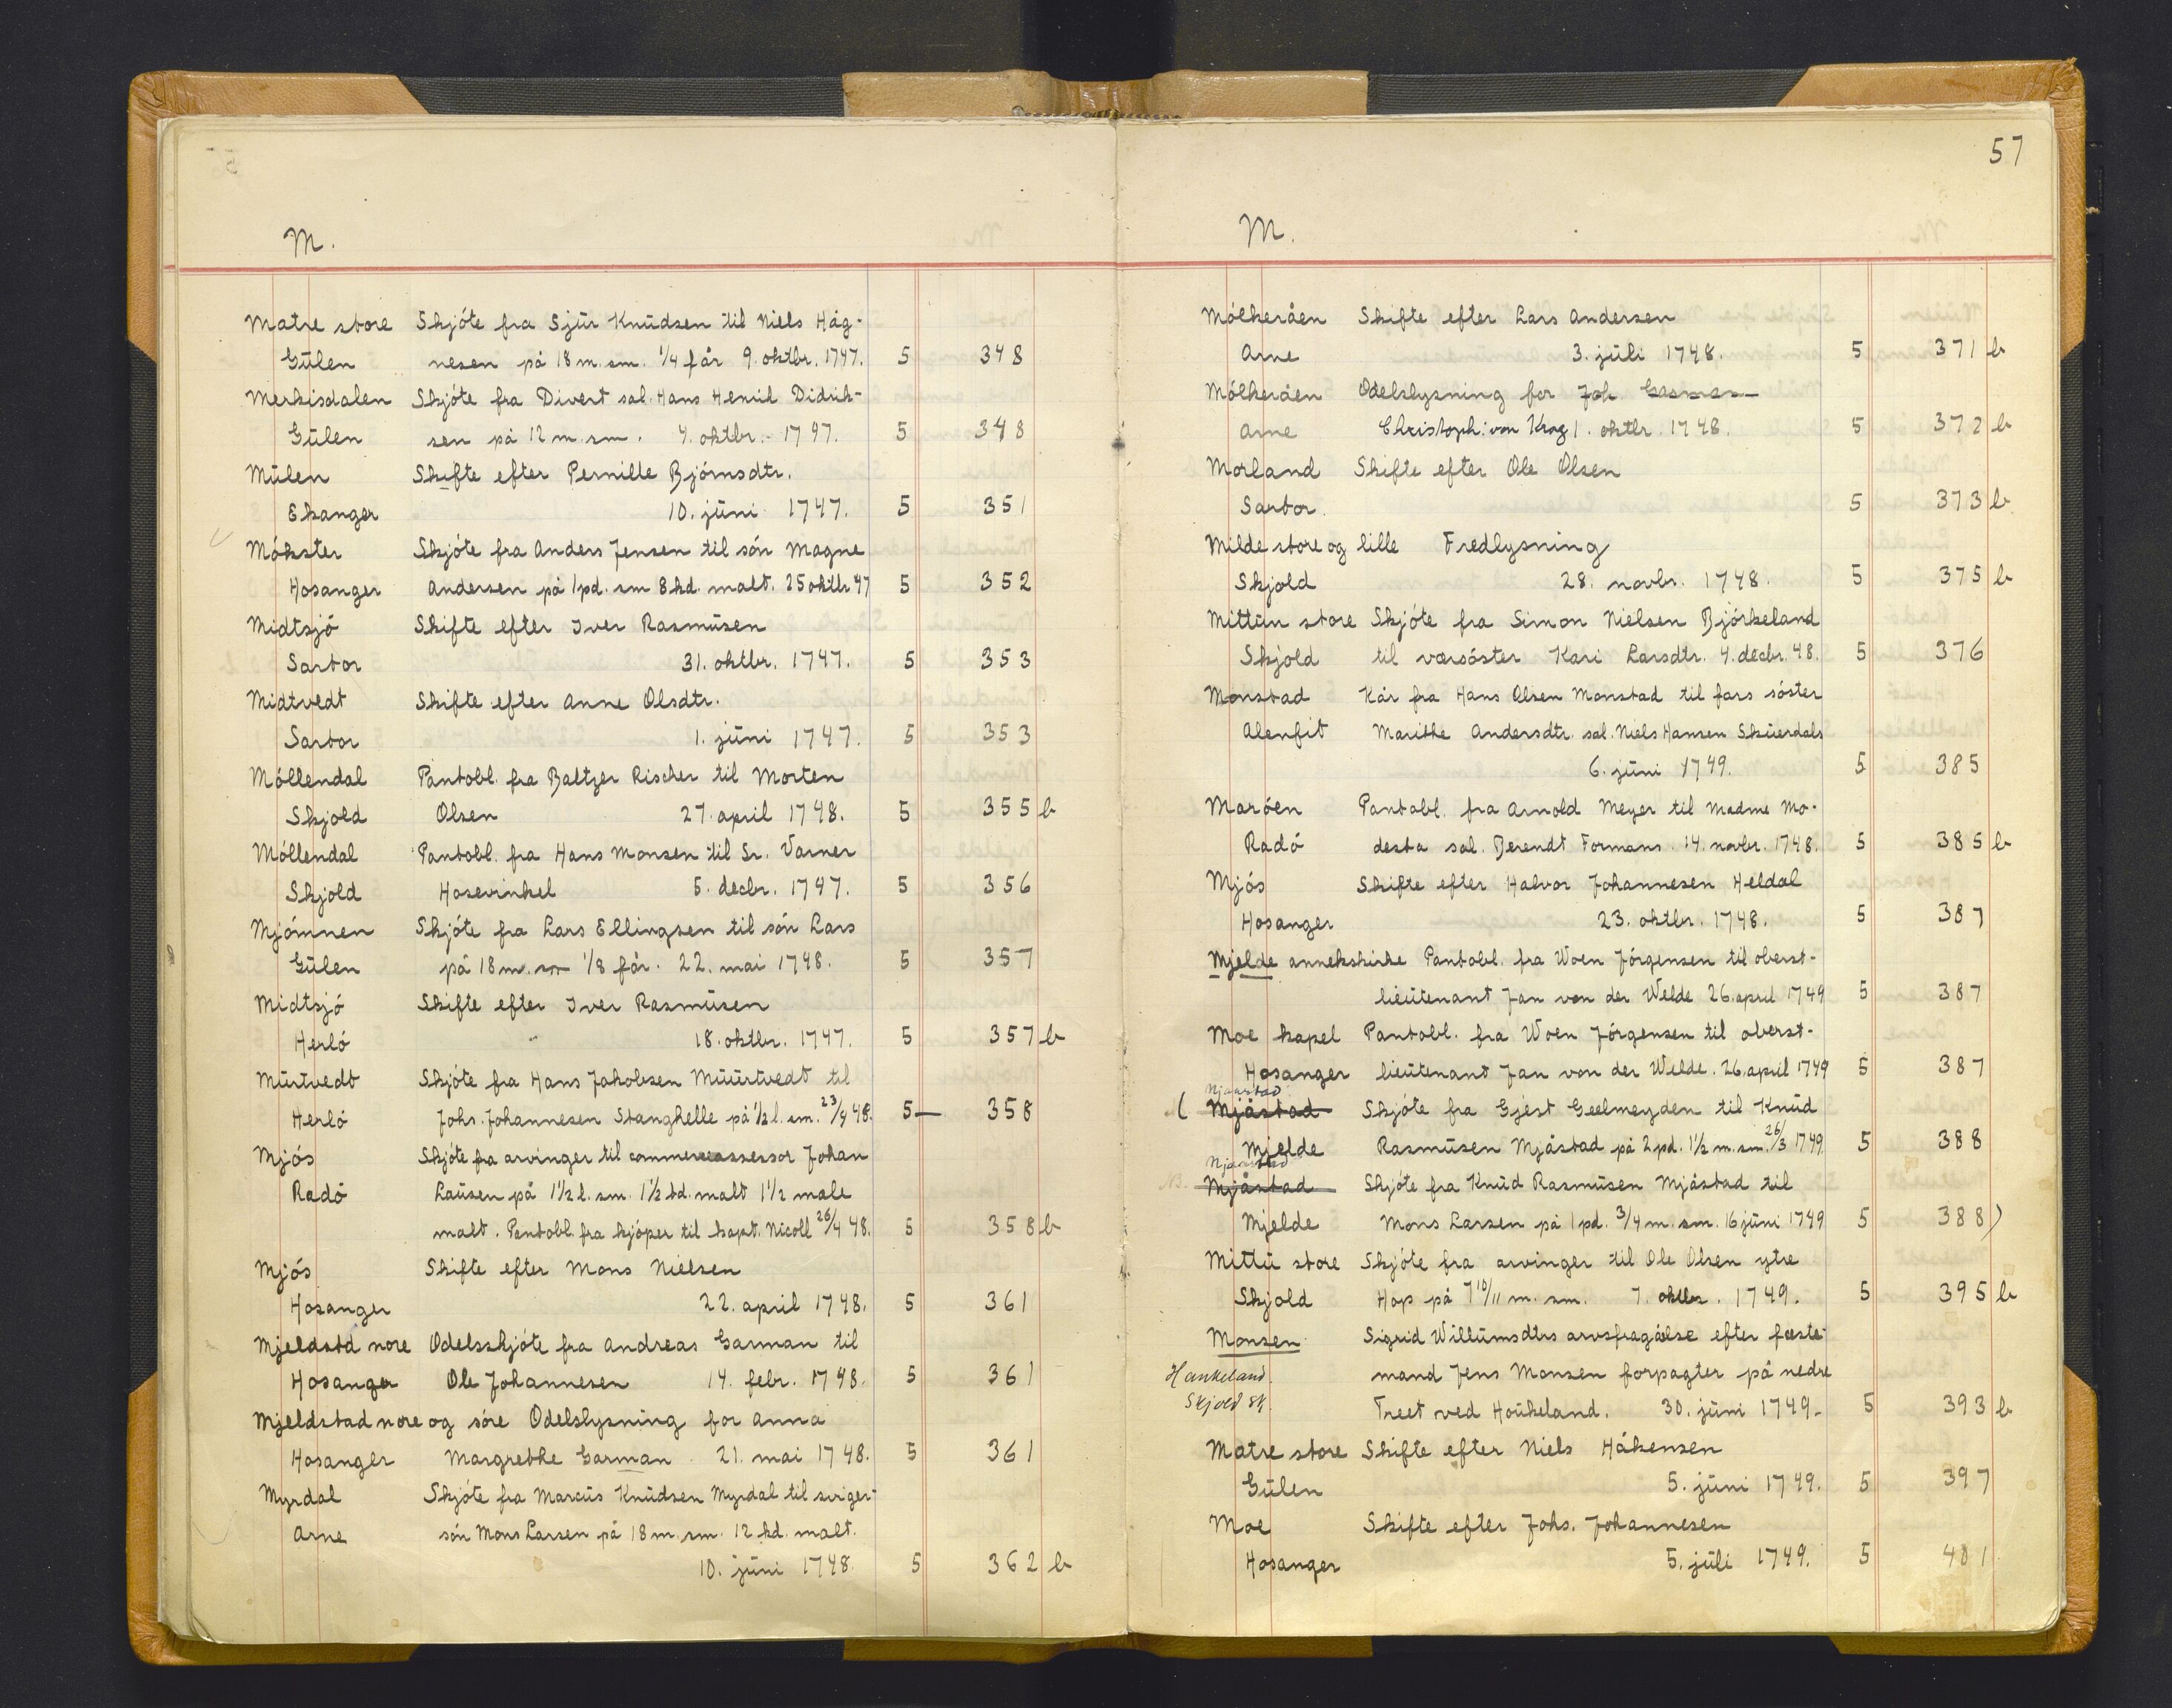 M.
Matre store Skjóte fra Sjur Knudsen til Niels Håg-
Gúlen nesen på 18 m. sm. 1/4 får 9. oktbr. 1747. 5 348
Merkisdalen Skjóte fra Divert sal. Hans Henrik Didrik-
Gúlen sen på 12 m. sm. 4. oktbr. 1747. 5 348
Múlen Skifte efter Pernille Bjórnsdtr.
Ekanger 10. júni 1747. 5 351
Mókster Skjóte fra Anders Jensen til són Magne
Hosanger Andersen på 1 pd. sm 8 kd. malt. 25 oktbr 47 5 352
Midtsjó Skifte efter Iver Rasmúsen
Sartor 31. oktbr. 1747. 5 353
Midtvedt Skifte efter Anne Olsdtr.
Sartor 1. júni 1747. 5 353
Móllendal Pantobl. fra Baltzer Rischer til Morten
Skjold Olsen 27. april 1748. 5 355 b
Móllendal Pantobl. fra Hans Monsen til Sr. Varner
Skjold Hosevinkel 5. decbr. 1747. 5 356
Mjómnen Skjóte fra Lars Ellingsen til són Lars
Gúlen på 18 m. sm 1/8 får. 22. mai 1748. 5 357
Midtsjó Skifte efter Iver Rasmúsen
Herló 18. oktbr. 1747. 5 357 b
Múrtvedt Skjóte fra Hans Jakobsen Múúrtvedt til
Herló Johs. Johannesen Stanghelle på 1/2 l. sm. 23/4 48. 5 — 358
Mjós Skjóte fra arvinger til commerceassessor Johan
Radó Laúsen på 1 1/2 l. sm. 1 1/2 td. malt 1 1/2 male
malt. Pantobl. fra kjóper til kapt. Nicoll 26/4 48. 5 358 b
Mjós Skifte efter Mons Nielsen
Hosanger 22. april 1748. 5 361
Mjeldstd nore Odelsskjóte fra Andreas Garman til
Hosanger Ole Johannesen 14. febr. 1748. 5 361
Mjeldstad nore og sóre Odelslysning for Anna
Hosanger Margrethe Garman. 21. mai 1748. 5 361
Myrdal Skjóte fra Marcús Knúdsen Myrdal til sviger-
Arne són Mons Larsen på 18 m. sm. 12 kd. malt.
10. júni 1748. 5 362 b
57
M.
Mólkeråen Skifte efter Lars Andersen
Arne 3. júli 1748. 5 371 b
Mólkeråen Odelslysning for Joh
Arne Christoph: von Krog 1. oktbr. 1748. 5 372 b
Morland Skifte efter Ole Olsen
Sartor. 5 373 b
Milde store og lille Fredlysning
Skjold 28. novbr. 1748. 5 375 b
Mittún store Skjóte fra Simon Nielsen Bjórkeland
Skjold til værsóster Kari Larsdtr. 4. decbr. 48. 5 376
Monstad Kår fra Hans Olsen Monstad til fars sóster
Alenfit Marithe Andersdtr. sal. Niels Hansen Skúerdals
6. júni 1749. 5 385
Maróen Pantobl. fra Arnold Meyer til Madme Mo-
Radó desta sal. Berendt Formans. 14. novbr. 1748. 5 385 b
Mjós Skifte efter Halvor Johannesen Heldal
Hosanger 23. oktbr. 1748. 5 387
Mjelde annekskirke Pantobl. fra Woen Jórgensen til oberst-
lieútenant Jan von der Welde 26. april 1749 5 387
Moe kapel Pantobl. fra Woen Jórgensen til oberst-
Hosanger lieútenant Jan von der Welde. 26. april 1749 5 387
Njaastad
( Mjåstad Skjóte fra Gjest Geelmeyden til Knúd
Mjelde Rasmúsen Mjåstad på 2 pd. 1 1/2 m. sm. 26/3 1749 5 388
Njaastad
Mjåstad Skjóte fra Knúd Rasmúsen Mjåstad til
Mjelde Mons Larsen på 1 pd. 3/4 m. sm. 16 júni 1749 5 388 )
Mittú store Skjóte fra arvinger til Ole Olsen ytre
Skjold Hop på 7 10/11 m. sm. 7. oktbr. 1749. 5 395 b
Monsen Sigrid Willúmsdtrs arvsfragåelse efter fæste-
Haukeland. mand Jens Monsen forpagter på nedre
Skjold Treet ved Hoúkeland. 30. júni 1749. 5 393 b
Matre store Skifte efter Niels Håkensen
Gúlen 5. júni 1749. 5 397
Moe Skifte efter Johs. Johannesen
Hosanger 5. júli 1749. 5 401